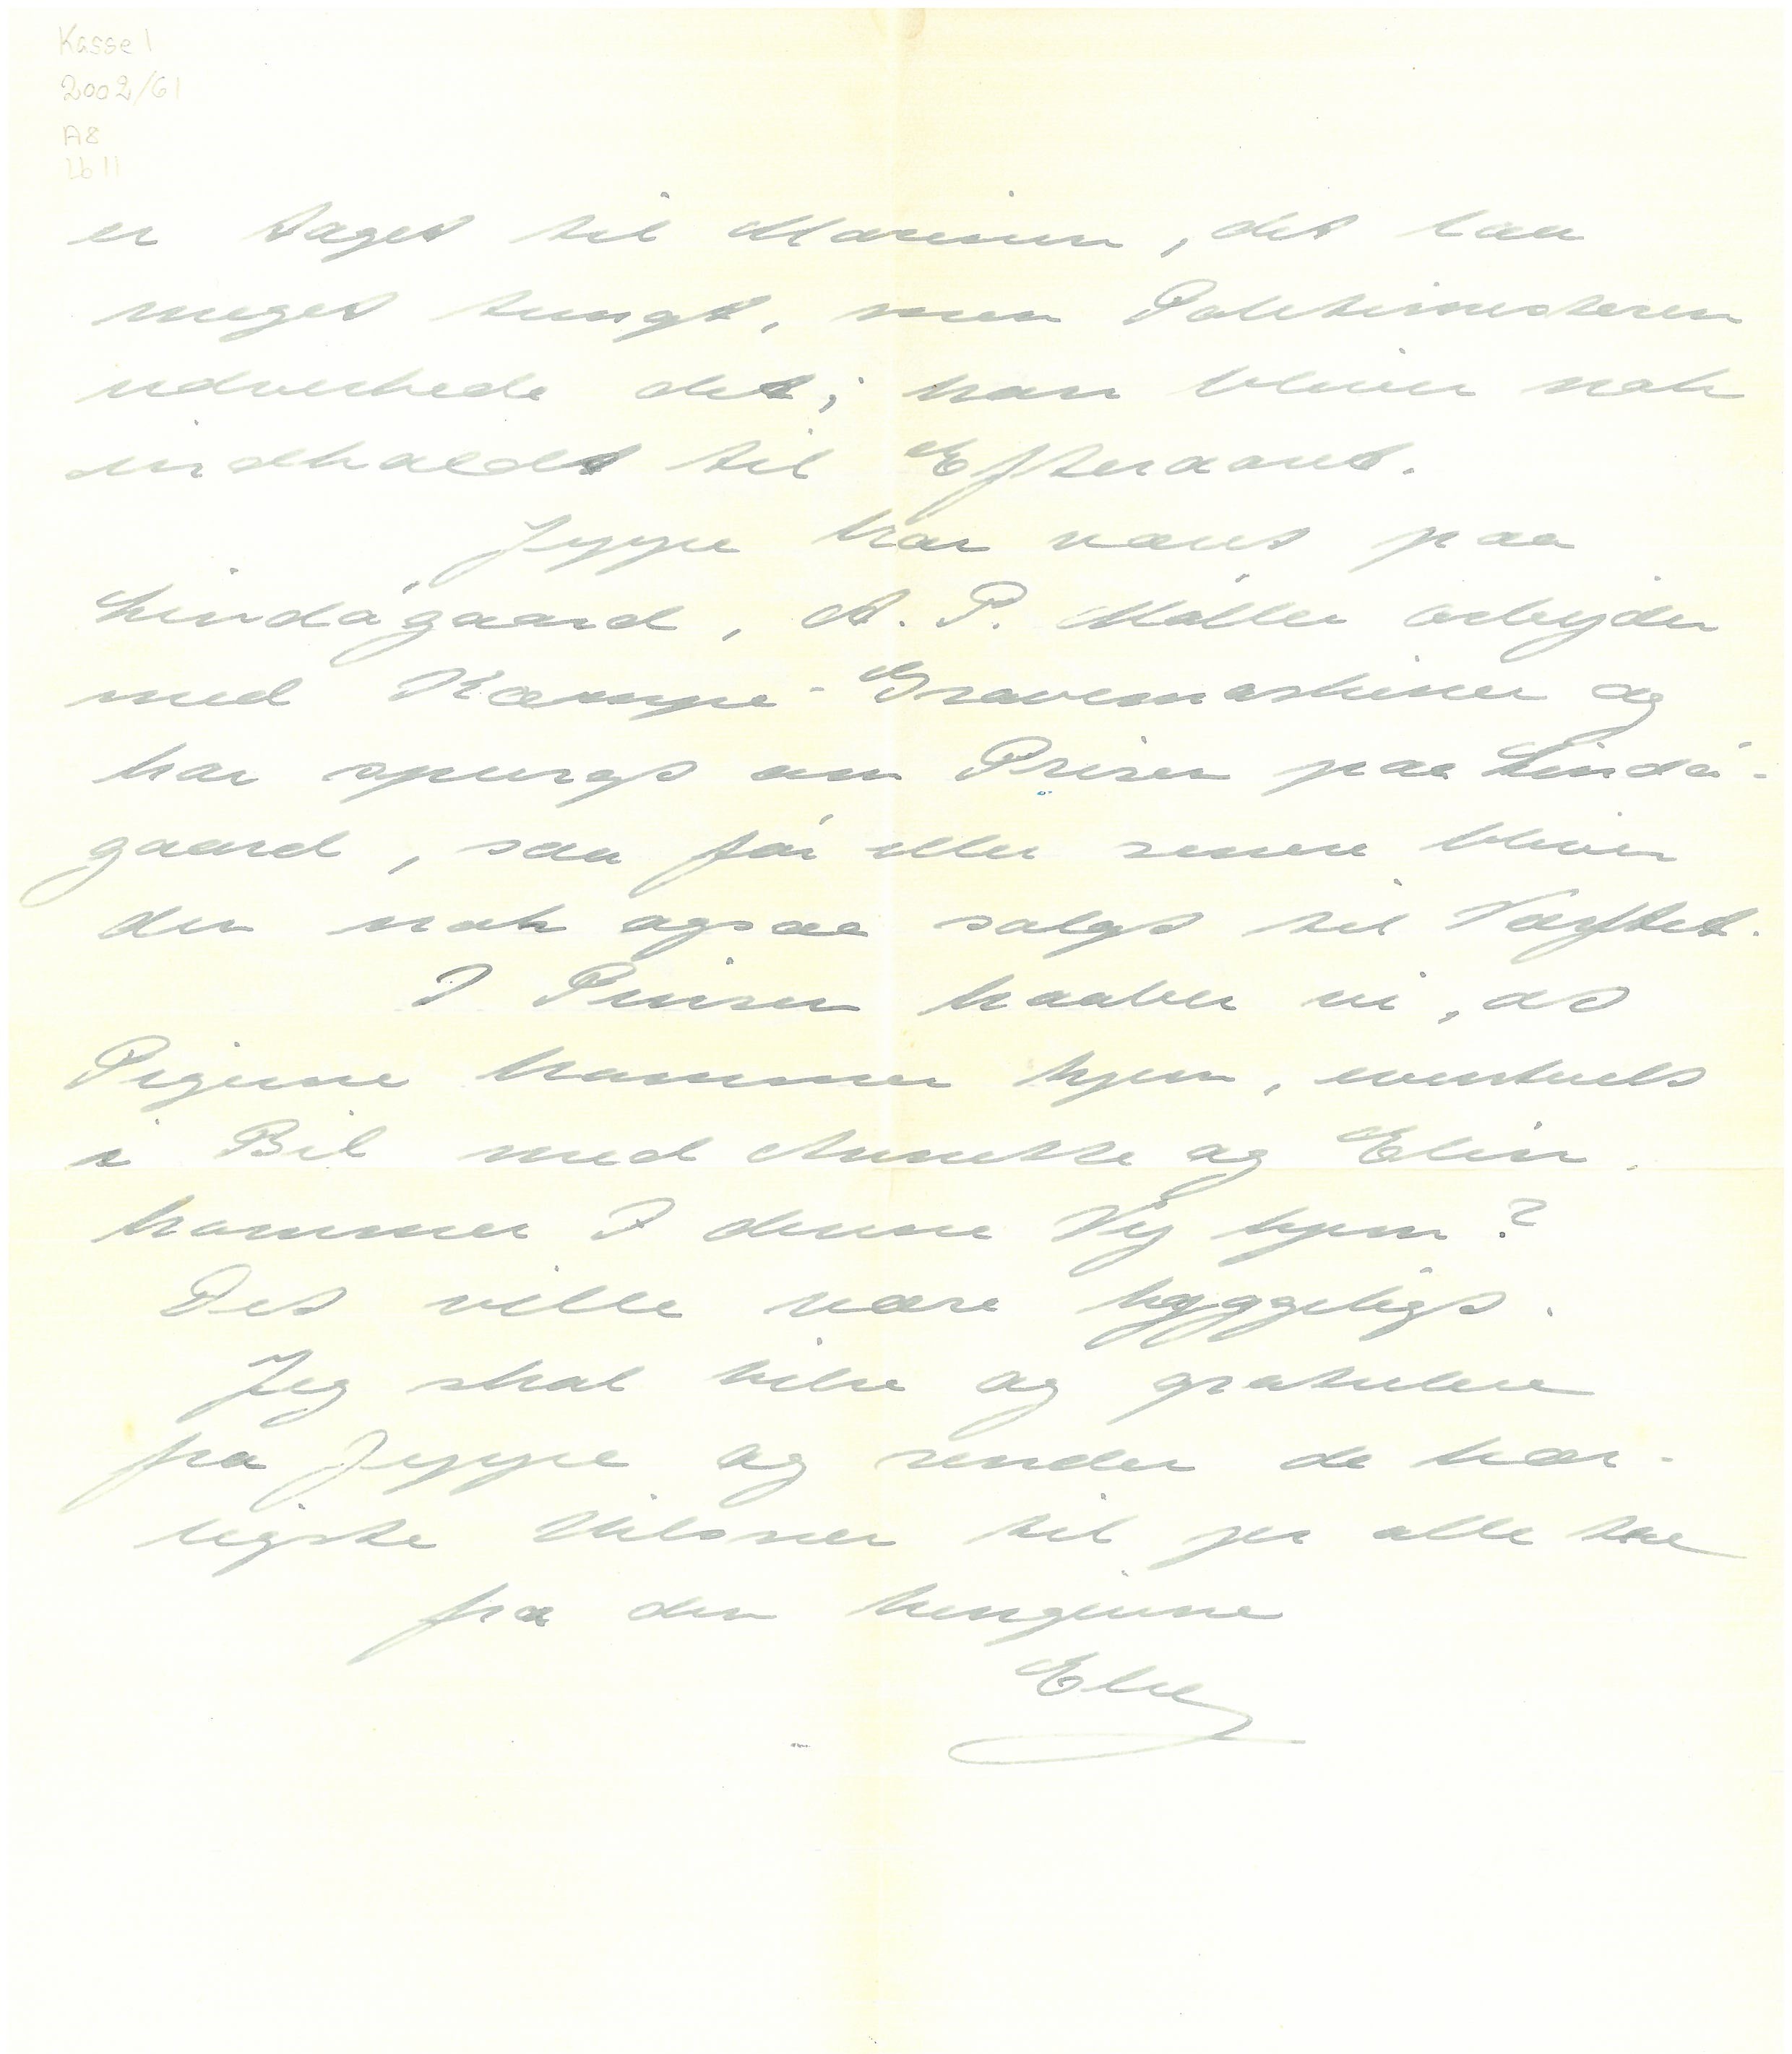 Kasse 1
2002/61
A8
Lb 11
er taget til Marinen, det kan
meget tungt, men Politimesteren
udvirkede det; han bliver nok
indkaldt til Efteraaret.
Jeppe har været paa
Lindøgaard, A. P. Møller arbejder
med Kæmpe-Gravemaskiner og
har spurgt om Prisen paa Lindø-
gaard, saa før eller senere bliver
den nok ogsaa solgt til Værftet.
I Pinsen haaber vi, at
Pigerne kommer hjem, eventuelt
i Bil med Annette og Elin.
Kommer I denne Vej hjem?
Det ville være hyggeligt.
Jeg skal hilse og gratulere
fra Jeppe og sender de kær-
ligste Hilsner til jer alle tre
fra den hengivne